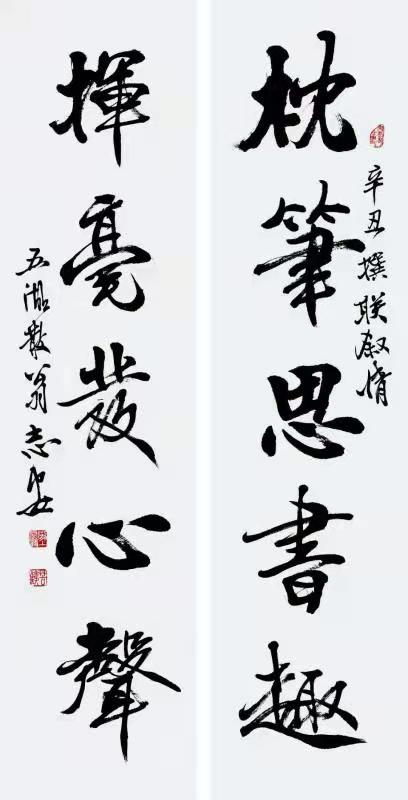 枕筆思書趣
辛丑撰联叙情
揮毫發心聲
五湖散翁志安